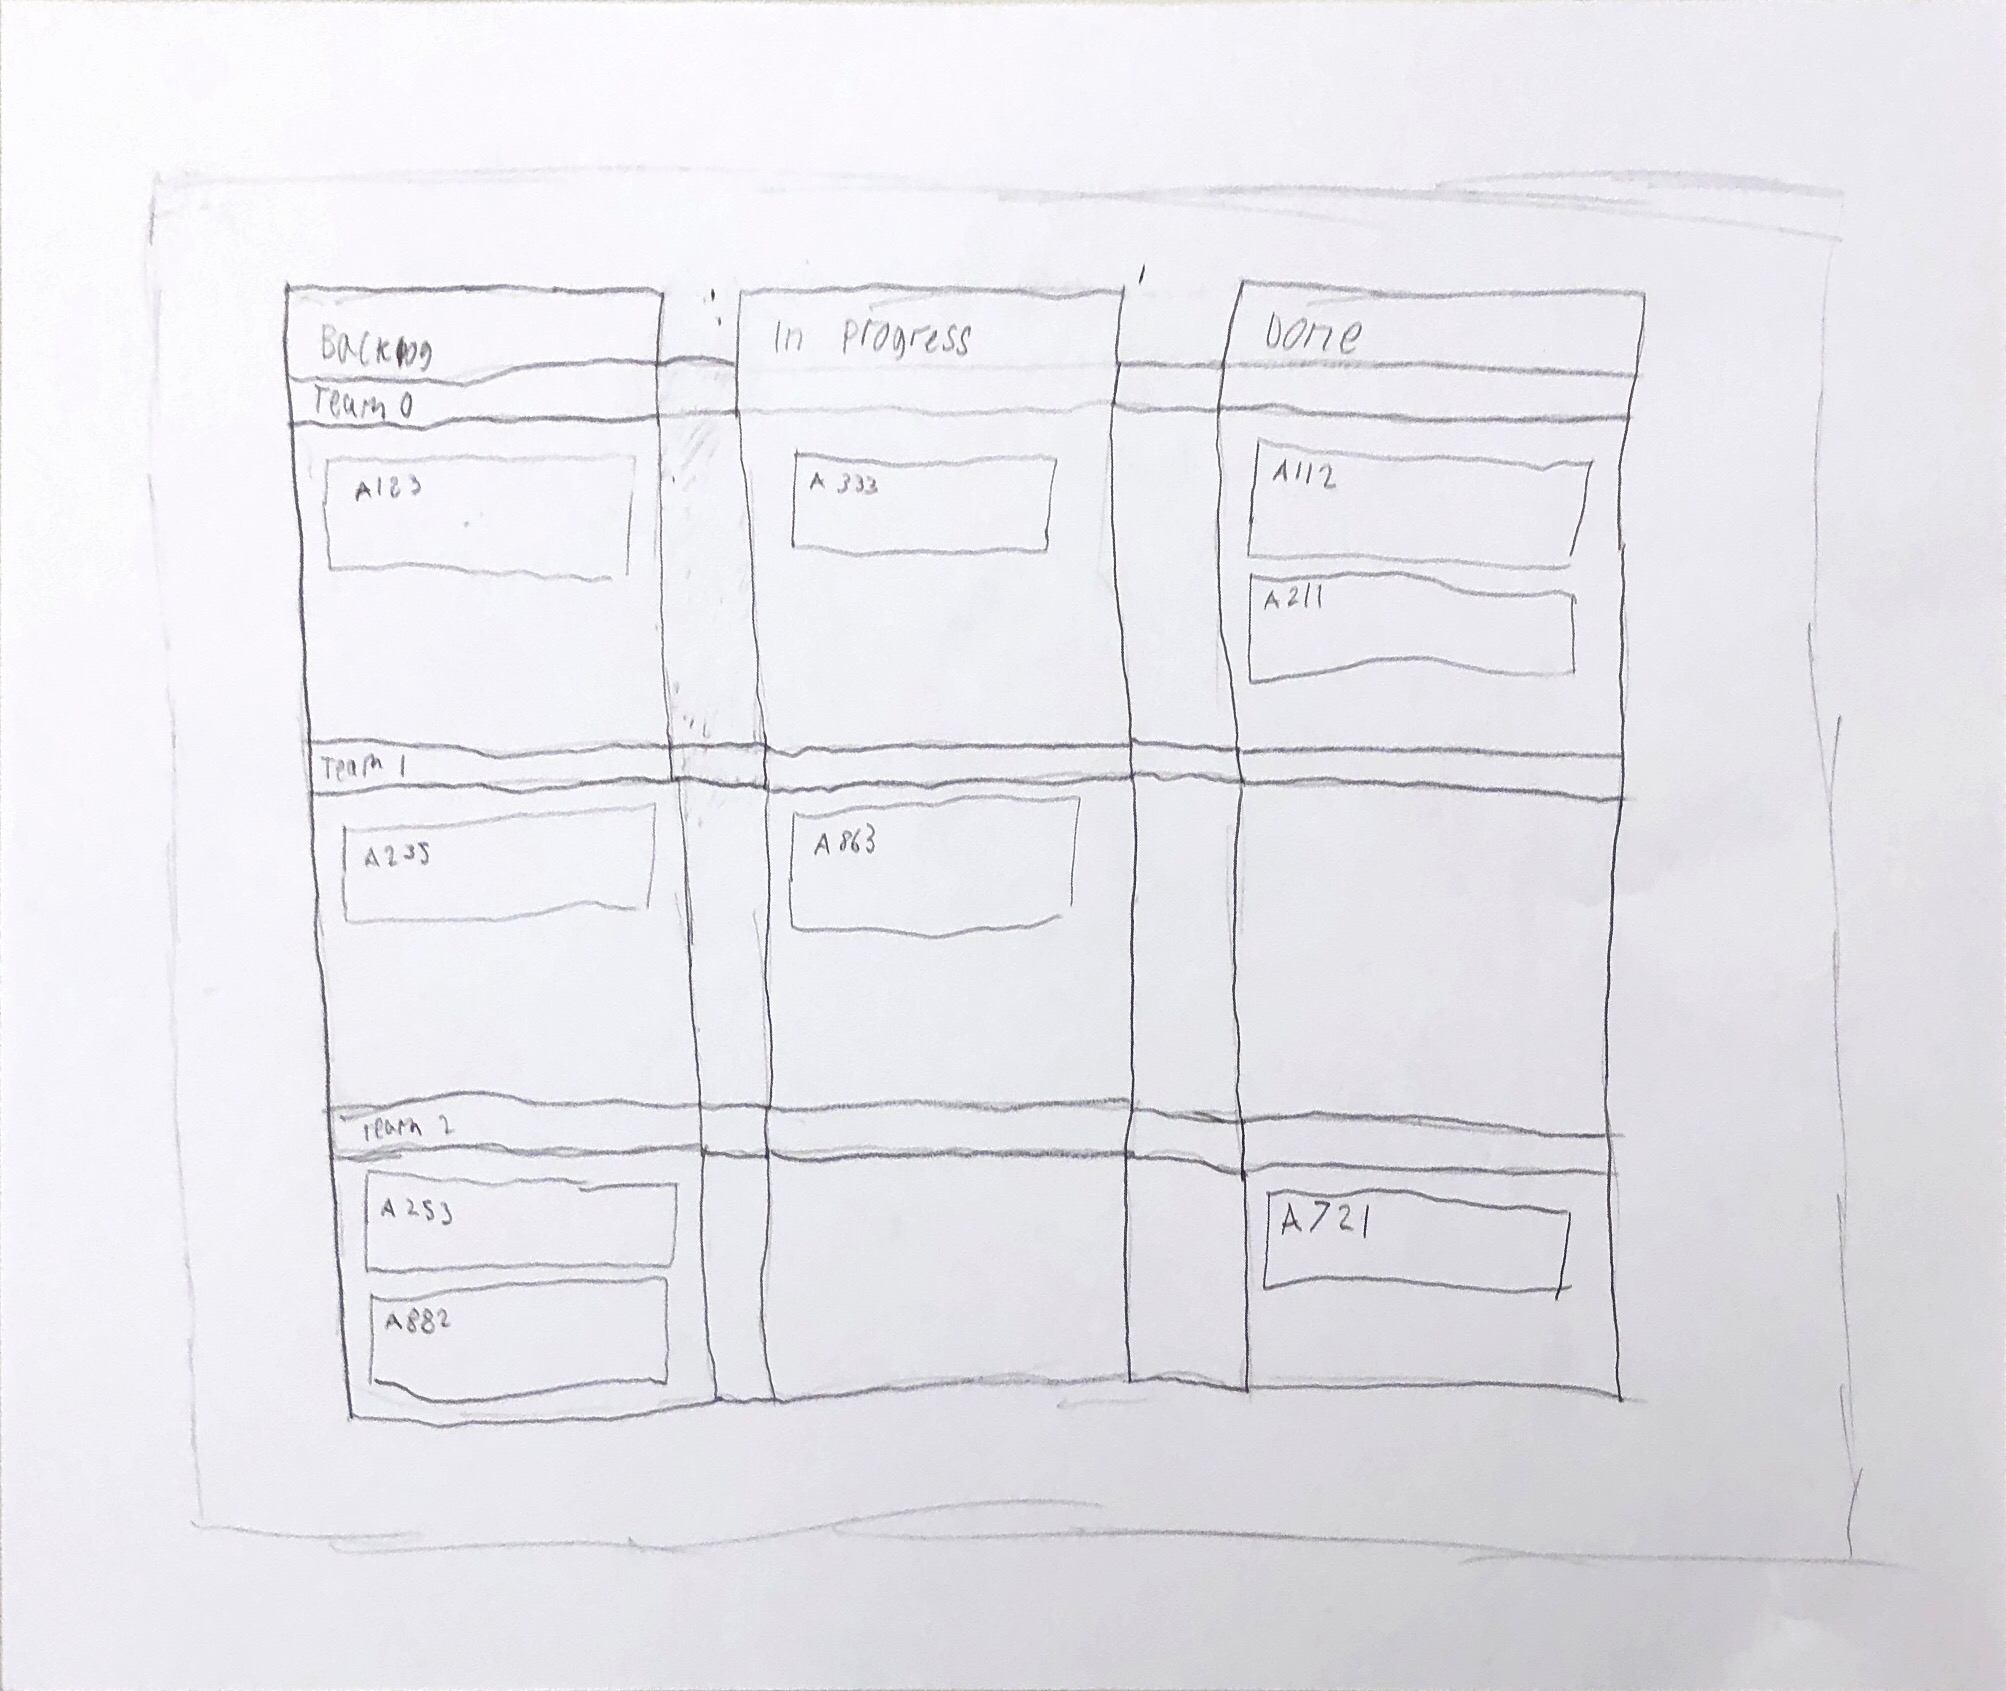 Backlog
In Progress
Done
Team 0
A123
A 333
A112
A211
Team 1
A235
A 863
Team 2
A 253
A882
A721